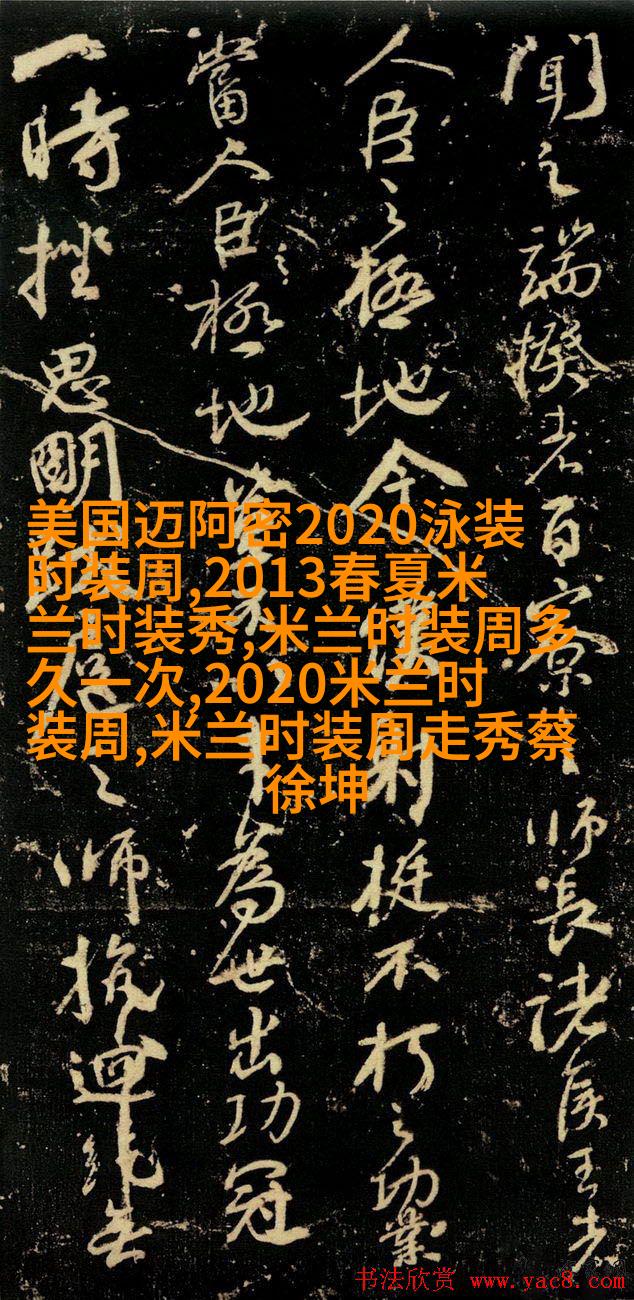 聞之端揆者百寮之師長諸侯王者
人臣之極地今僕射挺不朽之功業
當人臣之極地豈為世出功冠
一時挫思明跋扈之師抗迴紇無
美国迈阿密2020泳装
时装周,2013春夏米
兰时装秀,米兰时装周多
久一次,2020米兰时
装周,米兰时装周走秀蔡
徐坤
书法欣赏 www.yac8.com